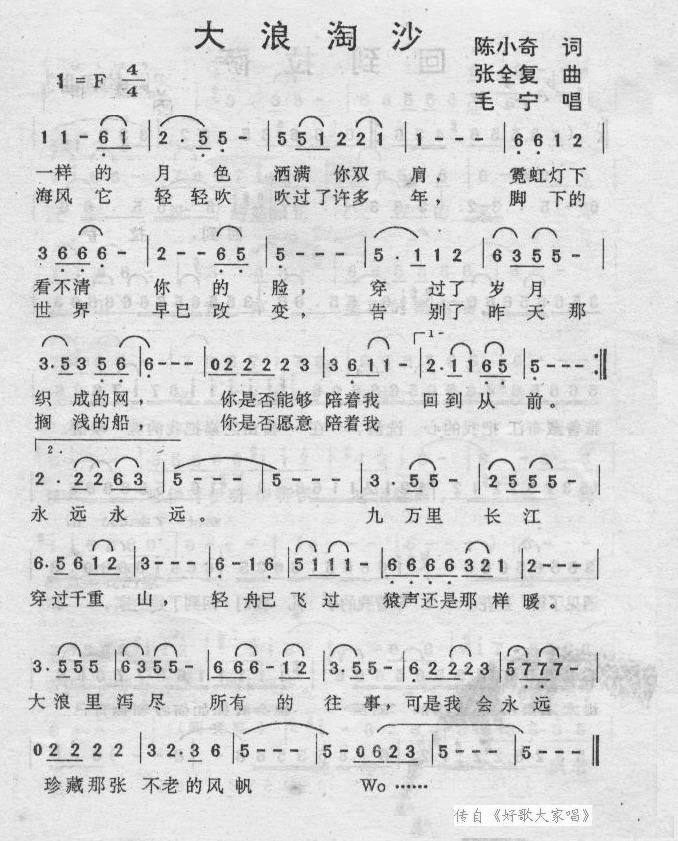 大浪淘沙
陈小奇 词
1 = F 4/4
张全复 曲
毛宁 唱
1 1 - 6 1 | 2 5 5 - | 5 5 1 2 2 1 | 1 - - - | 6 6 1 2
一样的 月色 洒满你双 肩, 霓虹灯下
海风它 轻轻吹 吹过了许多 年, 脚下的
3 6 6 6 - | 2 - - 6 5 | 5 - - - | 5 · 1 1 2 | 6 3 5 5 -
看不清 你的 脸, 穿过了 岁月
世界 早已改 变, 告别了 昨天那
3 · 5 3 5 6 | 6 - - - | 0 2 2 2 2 2 3 | 3 6 1 1 | 1· 2 · 1 1 6 5 | 5 - - - :‖
织成的网, 你是否能够 陪着我 回到从前。
搁浅的船, 你是否愿意 陪着我
2. 2 · 2 2 6 3 | 5 - - - | 5 - - - | 3 5 5 5 - | 2 5 5 5 -
永远永远。 九万里 长江
6 · 5 6 1 2 | 3 - - - | 6 - 1 6 | 5 1 1 1 - | 6 6 6 6 3 2 1 | 2 - - -
穿过千重 山, 轻舟已 飞过 猿声还是那样 暖。
3 · 5 5 5 | 6 3 5 5 - | 6 6 6 - 1 2 | 3 · 5 5 - | 6 2 2 2 3 | 5 7 7 7 -
大浪里 泻尽 所有的 往事, 可是我会 永远
0 2 2 2 2 | 3 2 · 3 6 | 5 - - - | 5 - - - | 5 - 0 6 2 3 | 5 - - - | 5 - - - ‖
珍藏那张 不老的风 帆 Wo ……
传自《好歌大家唱》